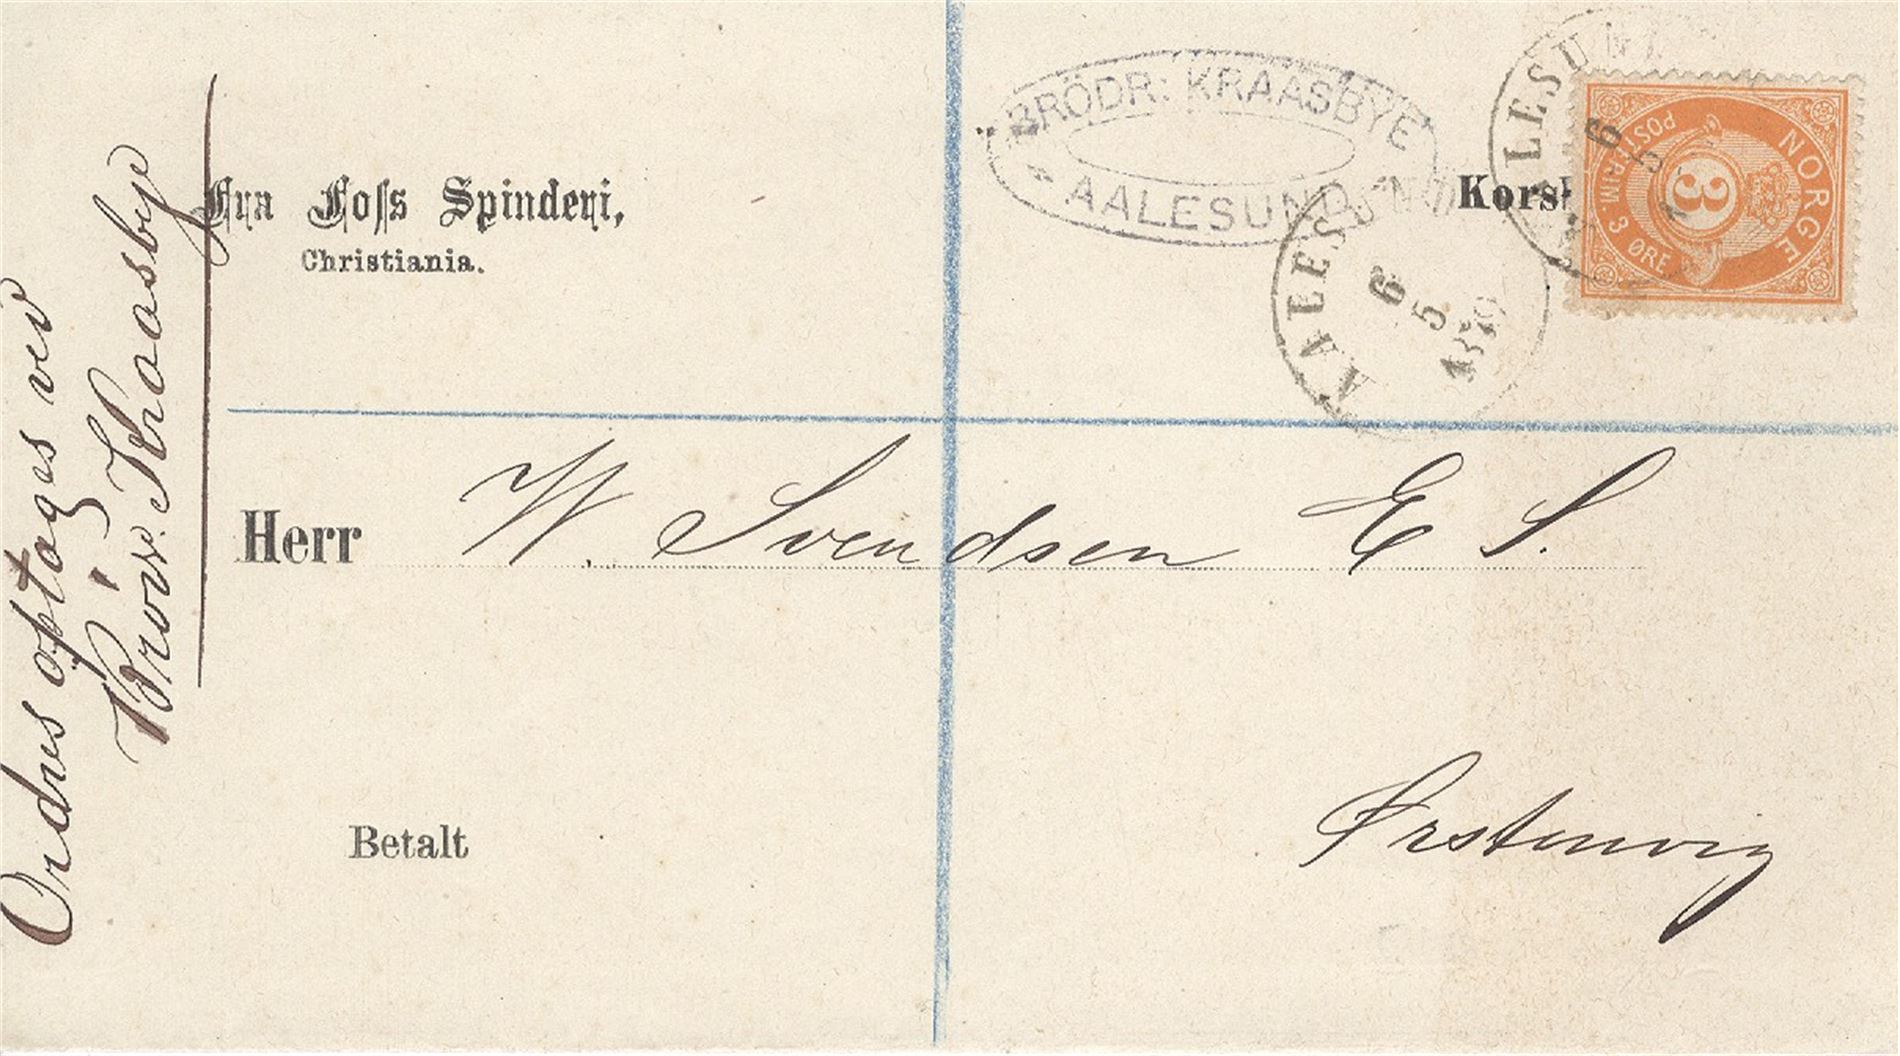 Fra Foss Spinderi,
Christiania.
BRÖDR: KRAASBYE
AALESUND
Kors
AALESUND
6
5
1879
LESUN
6
5
NORGE
POSTFRIM 3 ØRE
3
Ordres optages ved
Brödr. Kraasbye
Herr W. Svendsen E S.
Betalt
Ørstenvig